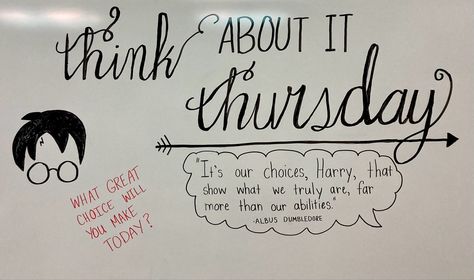 think ABOUT IT
thursday
"It's our choices, Harry, that
show what we truly are, far
more than our abilities."
-ALBUS DUMBLEDORE
WHAT GREAT
CHOICE WILL
YOU MAKE
TODAY?